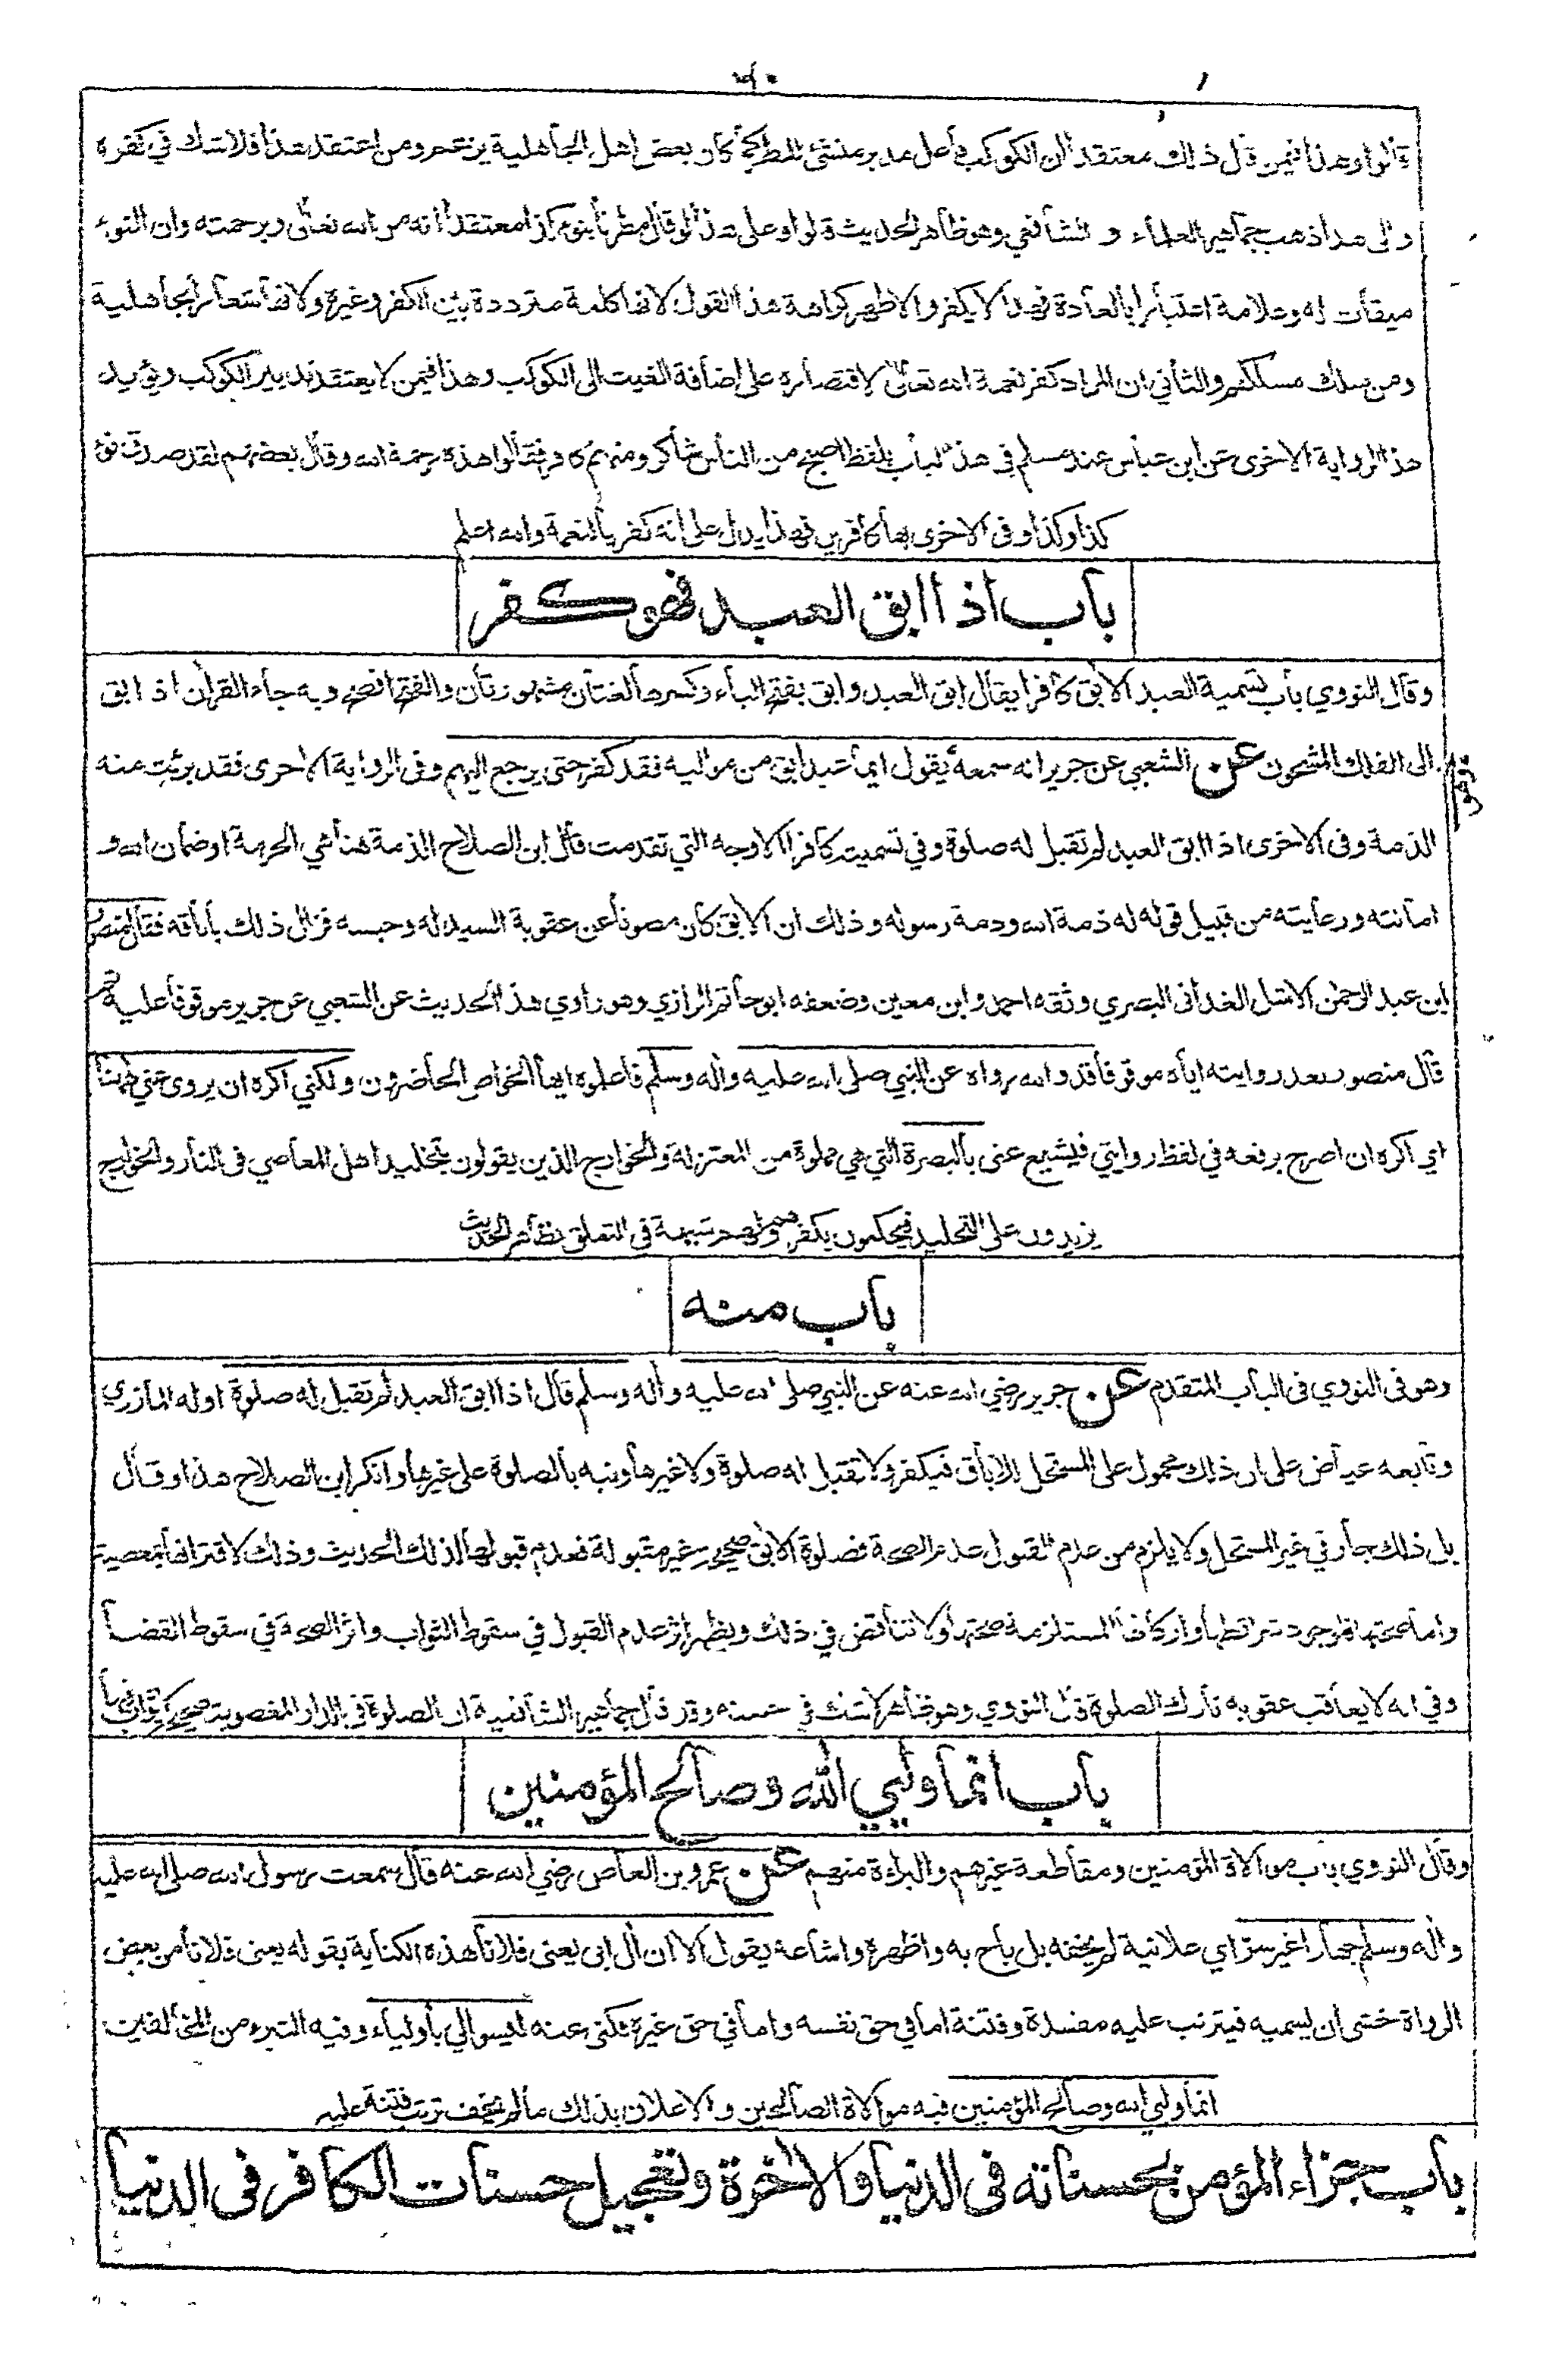 قالوا وهذا فيمن قال ذلك معتقدا ان الكوكب فاعل مدبر منشئ للمطر كما كان بعض اهل الجاهلية يزعم ومن اعتقد هذا فلا شك في كفره
والى هذا ذهب جماهير العلماء و الشافعي وهو ظاهر الحديث قالوا وعلى هذا لو قال مطرنا بنوء كذا معتقدا انه من الله تعالى وبرحمته وان النوء
ميقات له وعلامة اعتبارا بالعادة فهذا لا يكفر والاظهر كراهة هذا القول لانها كلمة مترددة بين الكفر وغيره ولانها شعار الجاهلية
ومن سلك مسلكهم والثاني ان المراد كفر نعمة الله تعالى لاقتصاره على اضافة الغيث الى الكوكب وهذا فيمن لا يعتقد تدبير الكوكب ويؤيد
هذا الرواية الاخرى عن ابن عباس عند مسلم في هذا الباب بلفظ اصبح من الناس شاكر ومنهم كافر فقالوا هذه رحمة الله وقال بعضهم لقد صدق نوء
كذا وكذا وفي الاخرى بها كافرين فهذا يدل على انه كفر بالنعمة والله اعلم
باب اذا ابق العبد فهو كفر
وقال النووي باب تسمية العبد الابق كافرا يقال ابق العبد وابق بفتح الباء وكسرها لغتان مشهورتان والفتح افصح وبه جاء القرآن اذ ابق
الى الفلك المشحون عن الشعبي عن جرير انه سمعه يقول ايما عبد ابق من مواليه فقد كفر حتى يرجع اليهم وفي الرواية الاخرى فقد برئت منه
الذمة وفي الاخرى اذا ابق العبد لم تقبل له صلوة وفي تسميته كافرا الاوجه التي تقدمت قال ابن الصلاح الذمة هنا هي الحرمة او ضمان الله و
امانته ورعايته من قبيل قوله له ذمة الله وذمة رسوله وذلك ان الابق كان مصونا عن عقوبة السيد له وحبسه فزال ذلك باباقه فقال منصور
ابن عبد الرحمن الاشل الغداني البصري وثقه احمد وابن معين وضعفه ابو حاتم الرازي وهو راوي هذا الحديث عن الشعبي عن جرير موقوفا عليه ثم
قال منصور بعد روايته اياه موقوفا قد والله رواه عن النبي صلى الله عليه وآله وسلم فاعلموه ايها الخواص الحاضرون ولكني اكره ان يروى عني ههنا
اي اكره ان اصرح برفعه في لفظ روايتي فيشيع عني بالبصرة التي هي مملوة من المعتزلة والخوارج الذين يقولون بتخليد اهل المعاصي في النار والخوارج
يزيدون على التخليد فيحكمون بكفرهم ولهم شبهة في التعلق بظاهر الحديث
باب منه
وهو في النووي في الباب المتقدم عن جرير رضي الله عنه عن النبي صلى الله عليه وآله وسلم قال اذا ابق العبد لم تقبل له صلوة اوله المازري
وتابعه عياض على ان ذلك محمول على المستحل للاباق فيكفر ولا تقبل له صلوة ولا غيرها ونبه بالصلوة على غيرها وانكر ابن الصلاح هذا وقال
بل ذلك جار في غير المستحل ولا يلزم من عدم القبول عدم الصحة فصلوة الابق صحيحة غير مقبولة فعدم قبولها لذلك الحديث وذلك لاقترانها بمعصية
واما صحتها فلوجود شرائطها واركانها المستلزمة صحتها ولا تناقض في ذلك ويظهر اثر عدم القبول في سقوط الثواب واثر الصحة في سقوط القضا
وفي انه لا يعاقب عقوبة تارك الصلوة قال النووي وهو ظاهر لا شك في حسنه وقد قال جماهير الشافعية ان الصلوة في الدار المغصوبة صحيحة لا ثواب فيها
باب انما وليي الله وصالح المؤمنين
وقال النووي باب موالاة المؤمنين ومقاطعة غيرهم والبراءة منهم عن عمرو بن العاص رضي الله عنه قال سمعت رسول الله صلى الله عليه
وآله وسلم جهارا غير سر اي علانية لم يخفه بل باح به واظهره واشاعه يقول الا ان آل ابي يعني فلانا هذه الكناية بقوله يعني فلانا من بعض
الرواة خشي ان يسميه فيترتب عليه مفسدة وفتنة اما في حق نفسه واما في حق غيره فكنى عنه ليسوا لي باولياء وفيه التبرء من المخالفين
انما وليي الله وصالح المؤمنين فيه موالاة الصالحين والاعلان بذلك ما لم يخف ترتب فتنة عليه
باب جزاء المؤمن بحسناته في الدنيا والاخرة وتعجيل حسنات الكافر في الدنيا